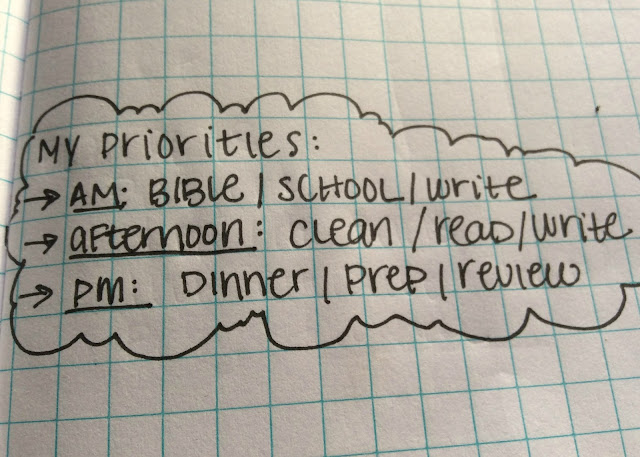 My Priorities:
→ AM: BIBLE / SCHOOL / write
→ afternoon: clean / read / write
→ pm: Dinner / prep / review